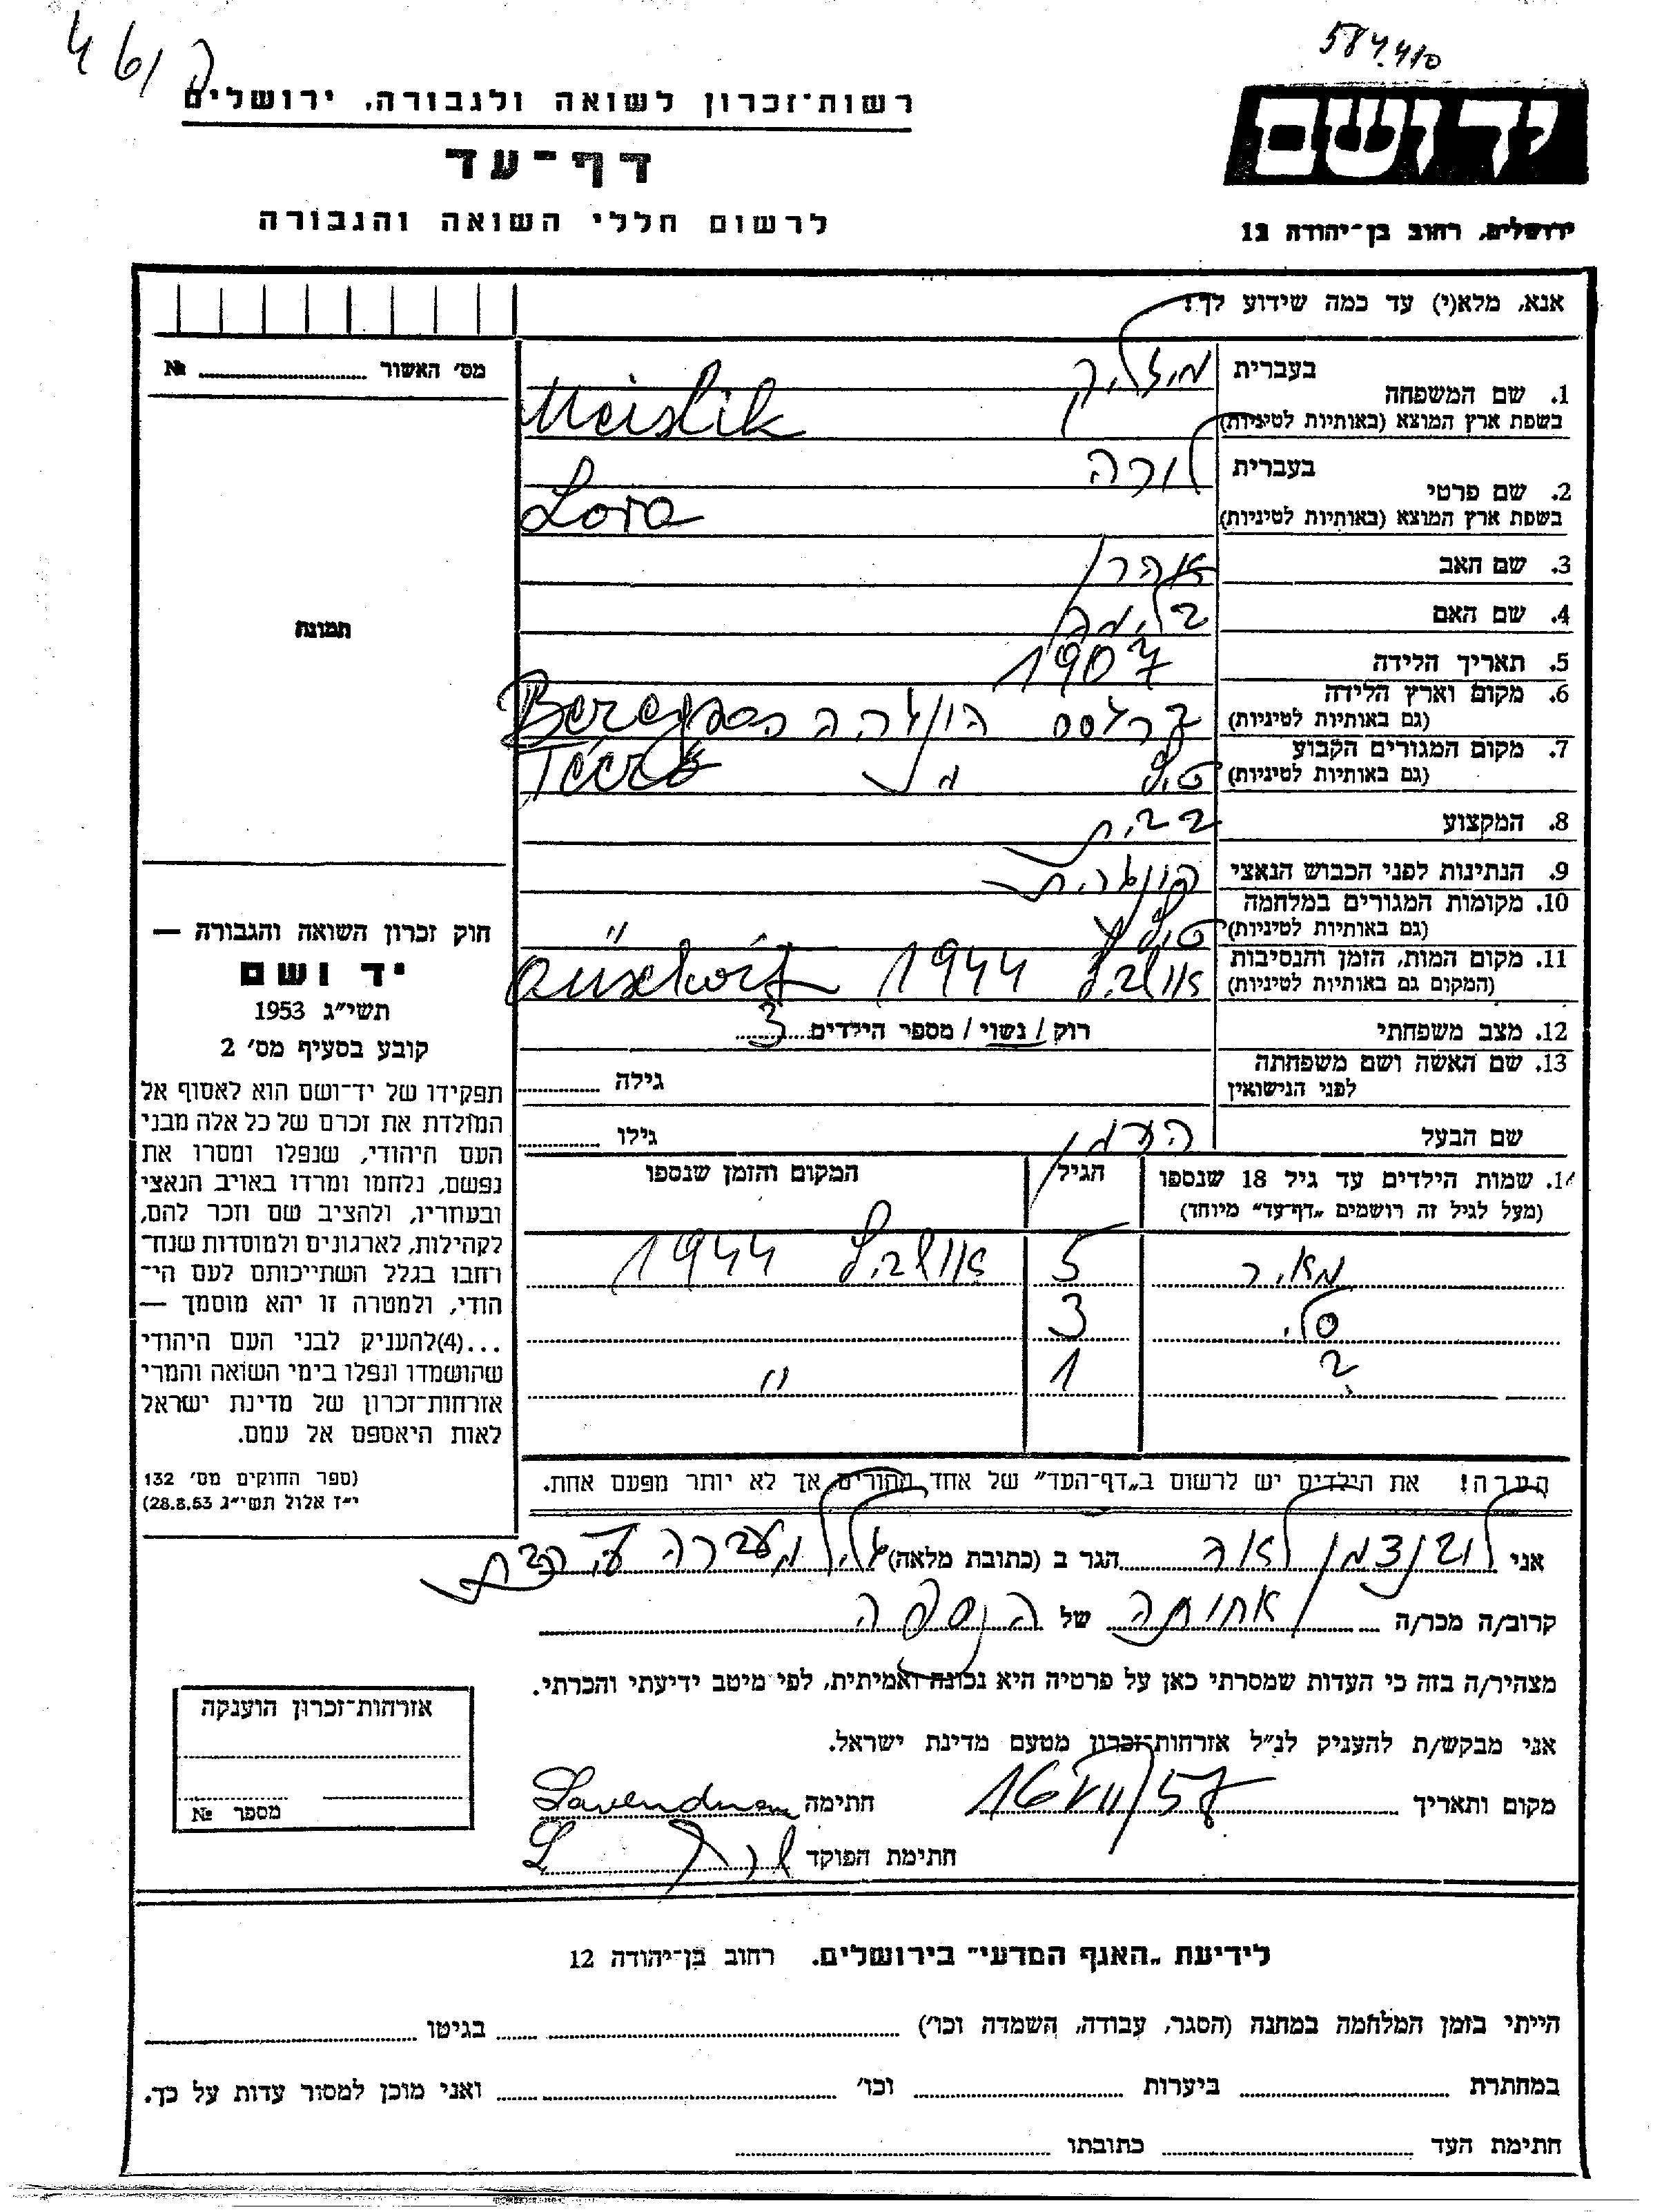 584.410
461 ה
רשות־זכרון לשואה ולגבורה, ירושלים
דף־עד
לרשום חללי השואה והגבורה
יד ושם
ירושלים, רחוב בן־יהודה 12
אנא, מלא(י) עד כמה שידוע לך!
מס׳ האשור № ........
תמונה
1. שם המשפחה
בעברית מיזליק
בשפת ארץ המוצא (באותיות לטיניות) Meislik
2. שם פרטי
בעברית לורה
בשפת ארץ המוצא (באותיות לטיניות) Lora
3. שם האב אהרן
4. שם האם בלימה
5. תאריך הלידה 1907
6. מקום וארץ הלידה
(גם באותיות לטיניות) הונגריה Beregsas
7. מקום המגורים הקבוע
(גם באותיות לטיניות)
8. המקצוע ב.בית
9. הנתינות לפני הכבוש הנאצי הונגרית
10. מקומות המגורים במלחמה
(גם באותיות לטיניות) "
11. מקום המות, הזמן והנסיבות
(המקום גם באותיות לטיניות) אושביץ 1944
12. מצב משפחתי רוק / נשוי / מספר הילדים 3
13. שם האשה ושם משפחתה
לפני הנישואין גילה ........
שם הבעל הערמן גילו ........
14. שמות הילדים עד גיל 18 שנספו
(מעל לגיל זה רושמים „דף־עד״ מיוחד)
הגיל
המקום והזמן שנספו
מאיר 5 אושביץ 1944
3
1 "
הערה! את הילדים יש לרשום ב„דף־העד״ של אחד ההורים אך לא יותר מפעם אחת.
חוק זכרון השואה והגבורה —
יד ושם
תשי״ג 1953
קובע בסעיף מס׳ 2
תפקידו של יד־ושם הוא לאסוף אל
המולדת את זכרם של כל אלה מבני
העם היהודי, שנפלו ומסרו את
נפשם, נלחמו ומרדו באויב הנאצי
ובעוזריו, ולהציב שם וזכר להם,
לקהילות, לארגונים ולמוסדות שנח־
רחבו בגלל השתייכותם לעם הי־
הודי, ולמטרה זו יהא מוסמך —
...(4)להעניק לבני העם היהודי
שהושמדו ונפלו בימי השואה והמרי
אזרחות־זכרון של מדינת ישראל
לאות היאספם אל עמם.
(ספר החוקים מס׳ 132
י״ז אלול תשי״ג 28.8.53)
אני לובנדמן לאה הגר ב (כתובת מלאה) מעברה
קרוב/ה מכר/ה אחותה של הנספה
מצהיר/ה בזה כי העדות שמסרתי כאן על פרטיה היא נכונה ואמיתית, לפי מיטב ידיעתי והכרתי.
אני מבקש/ת להעניק לנ״ל אזרחות־זכרון מטעם מדינת ישראל.
מקום ותאריך 16/VII/57 חתימה
חתימת הפוקד
אזרחות־זכרון הוענקה
מספר №
לידיעת „האגף המדעי״ בירושלים. רחוב בן־יהודה 12
הייתי בזמן המלחמה במחנה (הסגר, עבודה, השמדה וכו׳) ........ בגיטו ........
במחתרת ........ ביערות ........ וכו׳ ........ ואני מוכן למסור עדות על כך.
חתימת העד ........ כתובתו ........